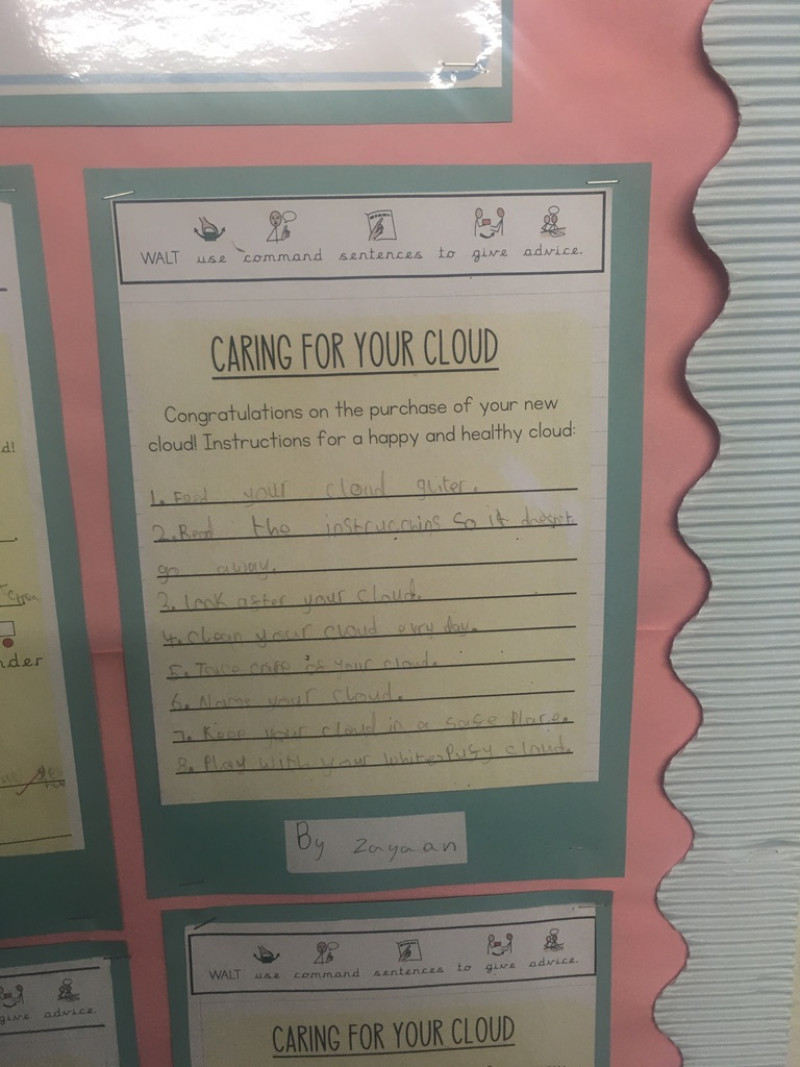 WALT use command sentences to give advice.
CARING FOR YOUR CLOUD
Congratulations on the purchase of your new
cloud! Instructions for a happy and healthy cloud:
1. Feed your cloud gliter.
2. Read the instrucmins so it doesnt
go away.
3. Look after your cloud.
4. Clean your cloud evry day.
5. Take care of your cloud.
6. Name your cloud.
7. Keep your cloud in a safe place.
8. Play with your white, cloud.
By Zayaan
d!
nder
WALT use command sentences to give advice.
CARING FOR YOUR CLOUD
give advice.